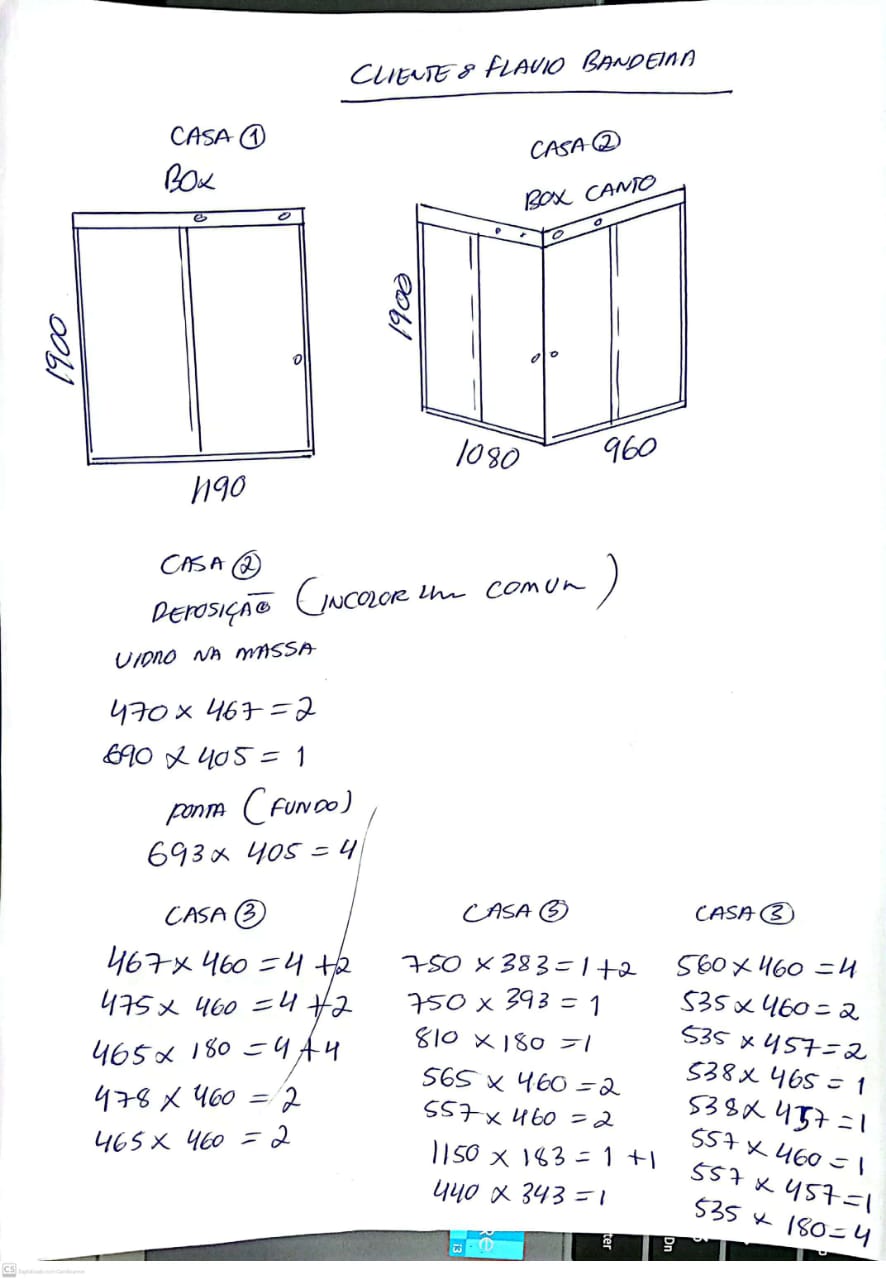 CLIENTE: FLAVIO BANDEIRA
CASA ①
BOX
1900
1190
CASA ②
BOX CANTO
1900
1080
960
CASA ②
REPOSIÇÃO (INCOLOR COMUM)
VIDRO NA MASSA
470 x 467 = 2
690 x 405 = 1
PORTA (FUNDO)
693 x 405 = 4
CASA ③
467 x 460 = 4 +2
475 x 460 = 4 +2
465 x 180 = 4 +4
478 x 460 = 2
465 x 460 = 2
CASA ③
750 x 383 = 1 +2
750 x 393 = 1
810 x 180 = 1
565 x 460 = 2
557 x 460 = 2
1150 x 183 = 1 +1
440 x 343 = 1
CASA ③
560 x 460 = 4
535 x 460 = 2
535 x 457 = 2
538 x 465 = 1
538 x 457 = 1
557 x 460 = 1
557 x 457 = 1
535 x 180 = 4
CS